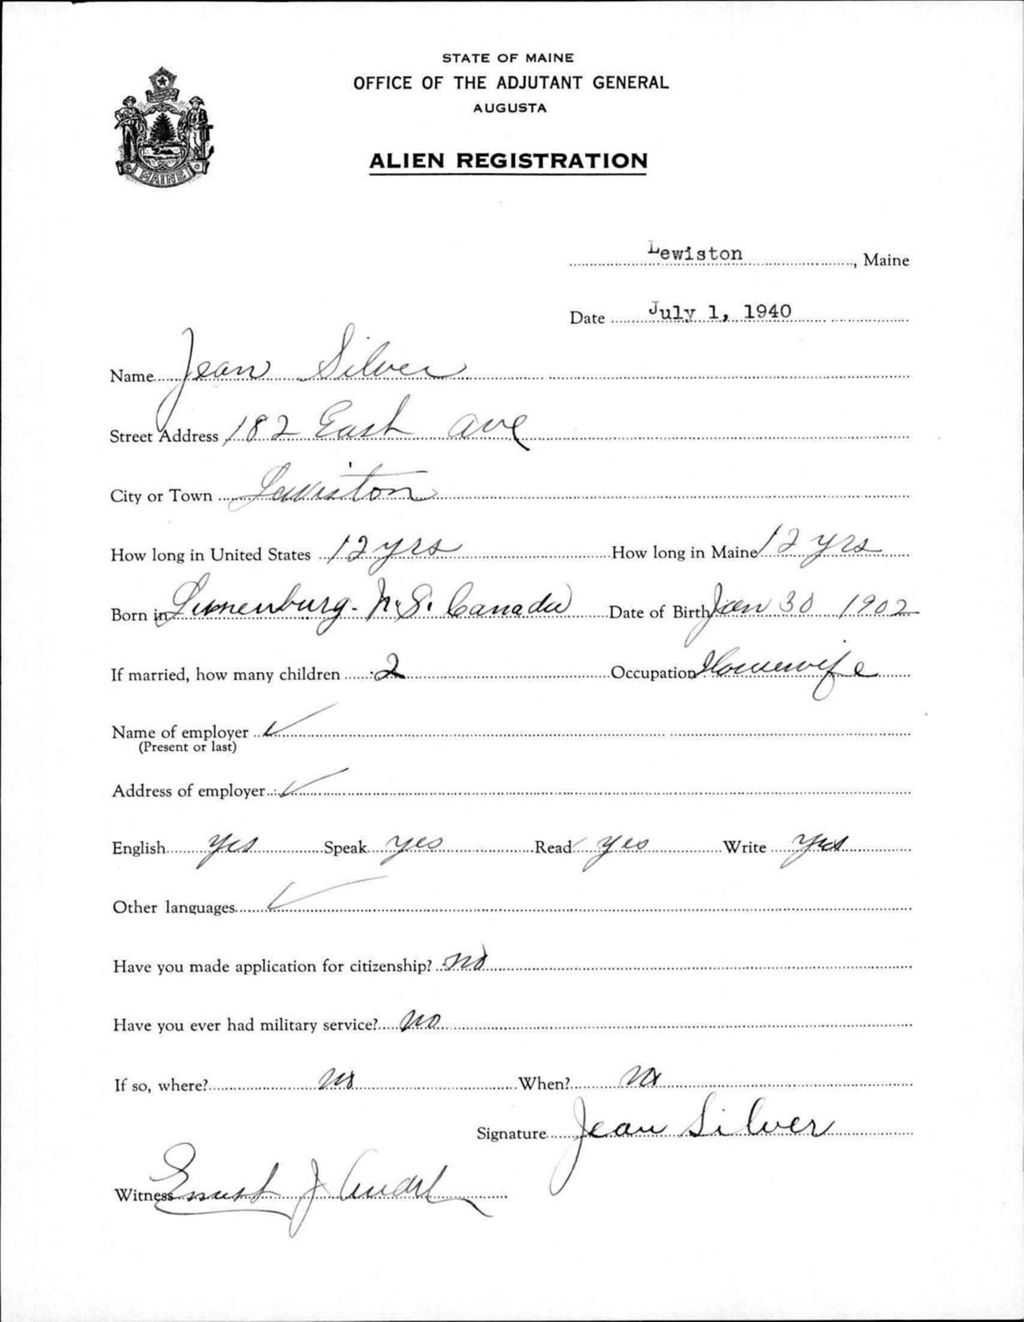 STATE OF MAINE
OFFICE OF THE ADJUTANT GENERAL
AUGUSTA
ALIEN REGISTRATION
MAINE
Lewiston, Maine
Date July 1, 1940
Name Jean Silver
Street Address 182 East Ave
City or Town Lewiston
How long in United States 12 yrs How long in Maine 12 yrs
Born in Lunenburg. N.S. Canada Date of Birth Jan 30 1902
If married, how many children 2 Occupation Housewife
Name of employer ✓
(Present or last)
Address of employer ✓
English yes Speak yes Read yes Write yes
Other languages ✓
Have you made application for citizenship? no
Have you ever had military service? no
If so, where? no When? no
Signature Jean Silver
Witness Ernest J